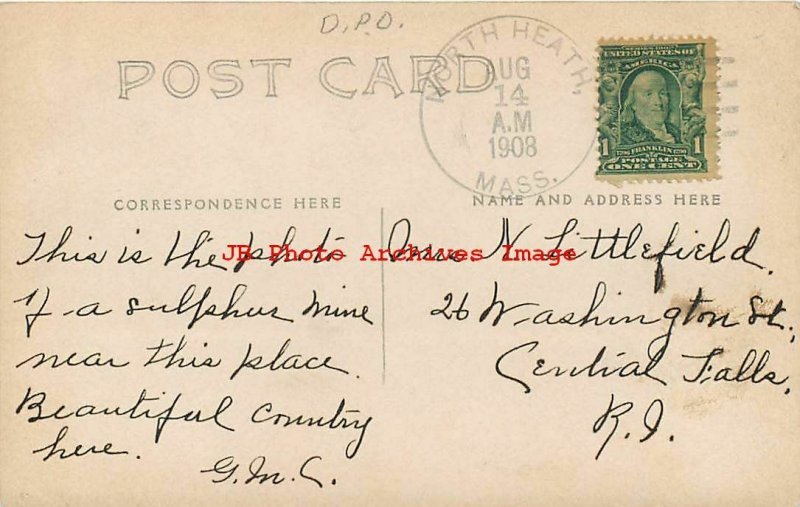 D.P.O.
POST CARD
NORTH HEATH,
AUG
14
A.M
1908
MASS.
SERIES 1902
UNITED STATES OF
AMERICA
1 1706 FRANKLIN 1790 1
POSTAGE
ONE CENT
CORRESPONDENCE HERE
NAME AND ADDRESS HERE
This is the photo
of a sulphur mine
near this place.
Beautiful country
here.
G.M.C.
JB Photo Archives Image
Mrs N Littlefield.
26 Washington St.,
Central Falls,
R.I.